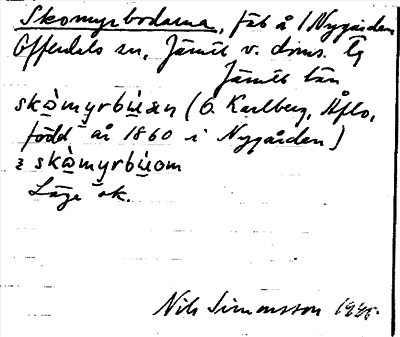 Skomyrbodarna, fäb å 1 Nygården
Offerdals sn, Jämtl. v. doms. tg
Jämtl. län
skò̠myrbú̠æn (O. Karlberg, Åflo,
född år 1860 i Nygården)
z skò̠myrbú̠om
Läge ok.
Nils Simonsson 1945.